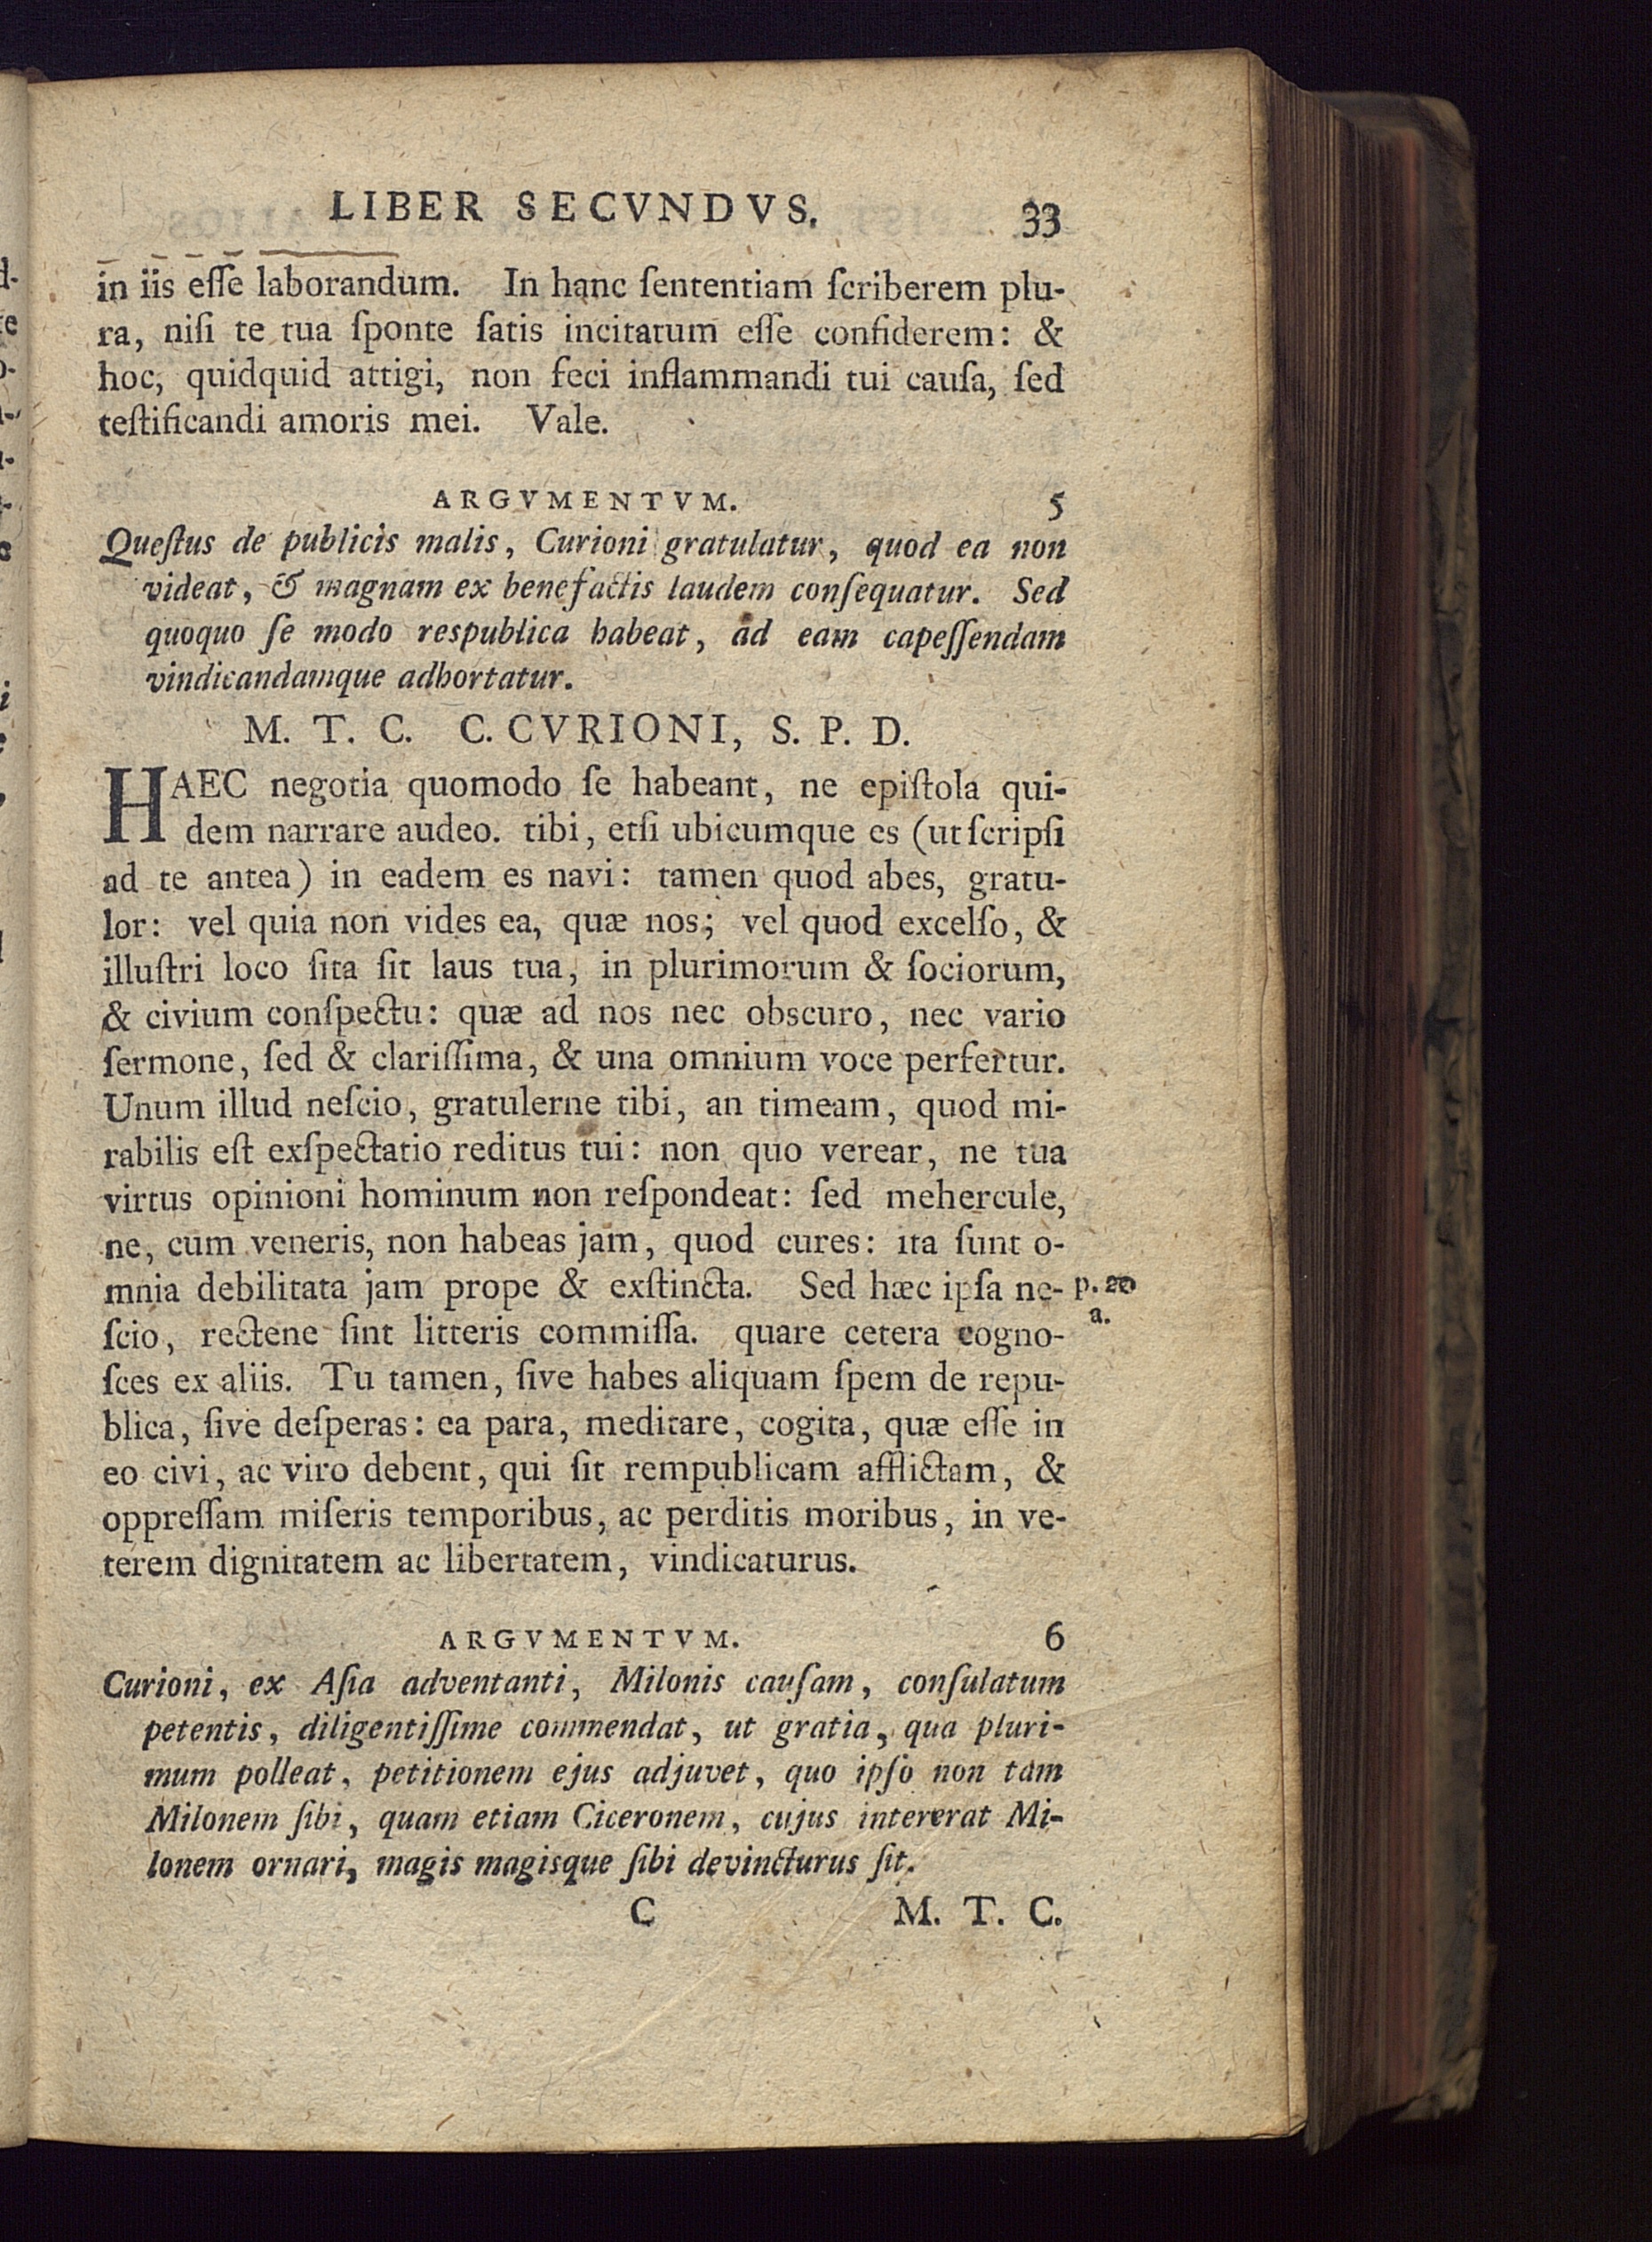 LIBER SECVNDVS. 33
in iis eſſe laborandum. In hanc ſententiam ſcriberem plu-
ra, niſi te tua ſponte ſatis incitatum eſſe confiderem: &
hoc, quidquid attigi, non feci inflammandi tui cauſa, ſed
teſtificandi amoris mei. Vale.
ARGVMENTVM. 5
Queſtus de publicis malis, Curioni gratulatur, quod ea non
videat, & magnam ex benefactis laudem conſequatur. Sed
quoquo ſe modo respublica habeat, ad eam capeſſendam
vindicandamque adhortatur.
M. T. C. C. CVRIONI, S. P. D.
HAEC negotia quomodo ſe habeant, ne epiſtola qui-
dem narrare audeo. tibi, etſi ubicumque es (ut ſcripſi
ad te antea) in eadem es navi: tamen quod abes, gratu-
lor: vel quia non vides ea, quæ nos; vel quod excelſo, &
illuſtri loco ſita ſit laus tua, in plurimorum & ſociorum,
& civium conſpectu: quæ ad nos nec obscuro, nec vario
ſermone, ſed & clariſſima, & una omnium voce perfertur.
Unum illud neſcio, gratulerne tibi, an timeam, quod mi-
rabilis eſt exſpectatio reditus tui: non quo verear, ne tua
virtus opinioni hominum non reſpondeat: ſed mehercule,
ne, cum veneris, non habeas jam, quod cures: ita ſunt o-
mnia debilitata jam prope & exſtincta. Sed hæc ipſa ne- p. 20
ſcio, rectene ſint litteris commiſſa. quare cetera cogno- a.
ſces ex aliis. Tu tamen, ſive habes aliquam ſpem de repu-
blica, ſive deſperas: ea para, meditare, cogita, quæ eſſe in
eo civi, ac viro debent, qui ſit rempublicam afflictam, &
oppreſſam miſeris temporibus, ac perditis moribus, in ve-
terem dignitatem ac libertatem, vindicaturus.
ARGVMENTVM. 6
Curioni, ex Aſia adventanti, Milonis cauſam, conſulatum
petentis, diligentiſſime commendat, ut gratia, qua pluri-
mum polleat, petitionem ejus adjuvet, quo ipſo non tam
Milonem ſibi, quam etiam Ciceronem, cujus intererat Mi-
lonem ornari, magis magisque ſibi devincturus ſit.
C M. T. C.